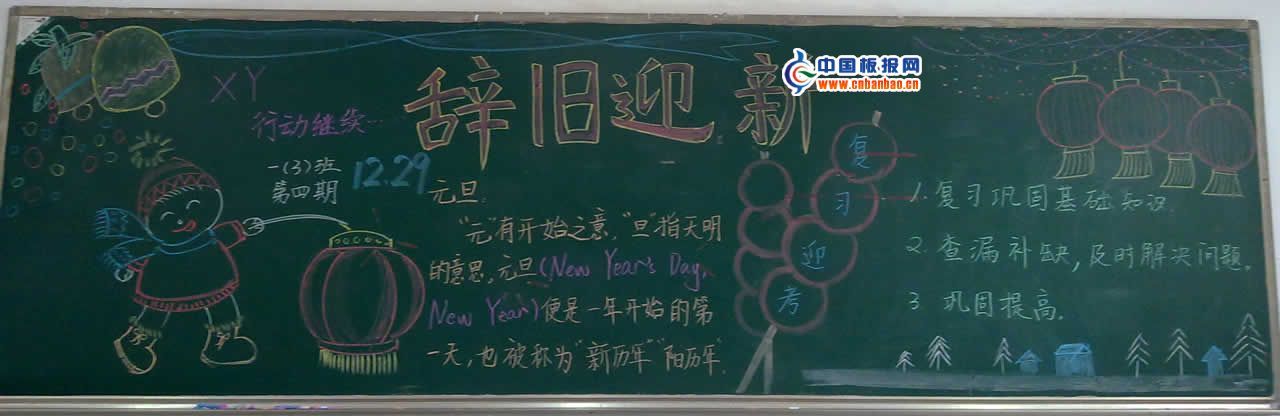 中国板报网
www.cnbanbao.cn
辞旧迎新
XY
行动继续…
一(3)班
第四期
12.29
元旦:
“元”有开始之意,“旦”指天明
的意思,元旦(New Year's Day,
New Year)便是一年开始的第
一天,也被称为“新历年”“阳历年”.
复习迎考
1. 复习巩固基础知识.
2. 查漏补缺,及时解决问题.
3. 巩固提高.